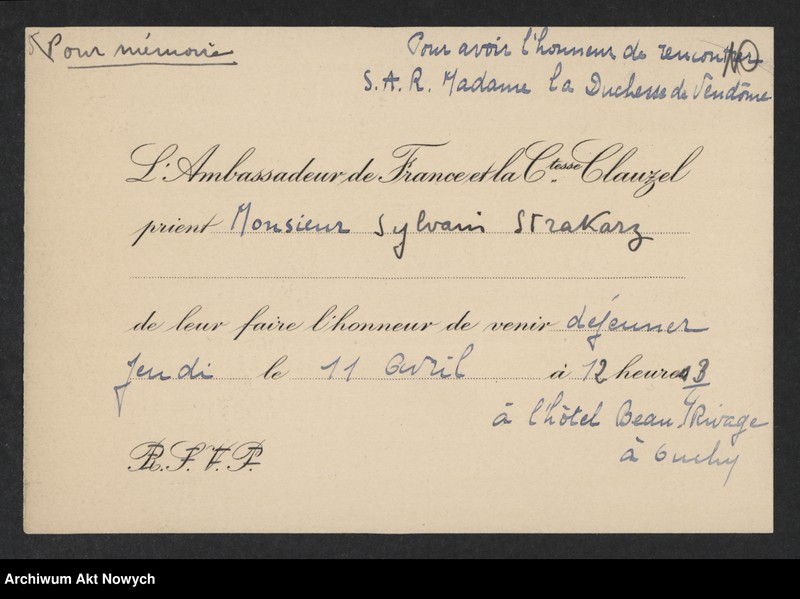 Pour mémoire
Pour avoir l'honneur de rencontrer
S.A.R. Madame la Duchesse de Vendôme
L'Ambassadeur de France et la Ctesse Clauzel
prient Monsieur Sylvain Strakarz
de leur faire l'honneur de venir déjeuner
Jeudi le 11 Avril à 12 heures
à l'hôtel Beau Rivage
à Ouchy
R.S.V.P.
Archiwum Akt Nowych